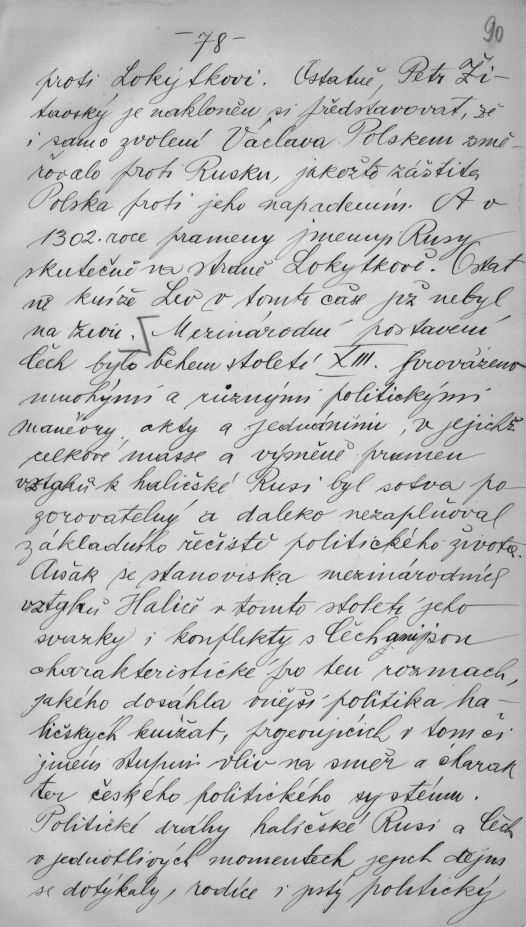 -78-
90
proti Lokýtkovi. Ostatně, Petr Ži-
tavský je nakloněn si představovat, že
i samo zvolení Václava Polskem smě-
řovalo proti Rusku, jakožto záštita
Polska proti jeho napadením. A v
1302. roce prameny jmenují Rusy
skutečně na straně Lokýtkově. Ostat
ně kníže Lev v tomto čase již nebyl
na živu. Mezinárodní postavení
Čech bylo během století XIII. provázeno
mnohými a různými politickými
manévry, akty a jednáními, v jejichž
celkové masse a výsměně pramen
vztahů k haličské Rusi byl sotva po
zorovatelný a daleko nezaplňoval
základního řečiště politického života.
Avšak se stanoviska mezinárodních
vztahů Haliče v tomto století jeho
svazky i konflikty s Čechami jsou
charakteristické pro ten rozmach,
jakého dosáhla vnější politika ha-
ličských knížat, projevujících v tom či
jiném stupni vliv na směr a charak
ter českého politického systému.
Politické dráhy haličské Rusi a Čech
v jednotlivých momentech jejich dějin
se dotýkaly, rodíce i jistý politický